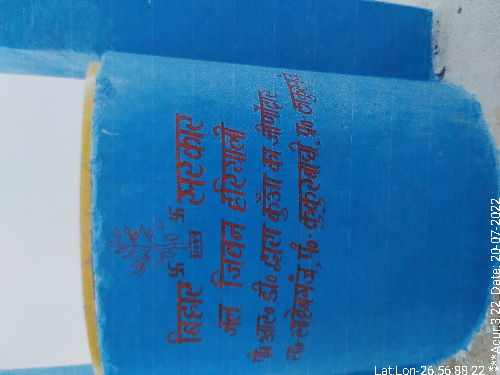 बिहार 卐 卐 सरकार
जल जिवन हरियाली
पी० आर० डी० द्वारा कुँआ का जीर्णोद्वार
सा० साहेबगंज, पं०- कुकुरबाघी, प्र० ठाकुरगंज
Lat:Lon-26.56:88.22
***Acur:3.22 Date: 20-07-2022